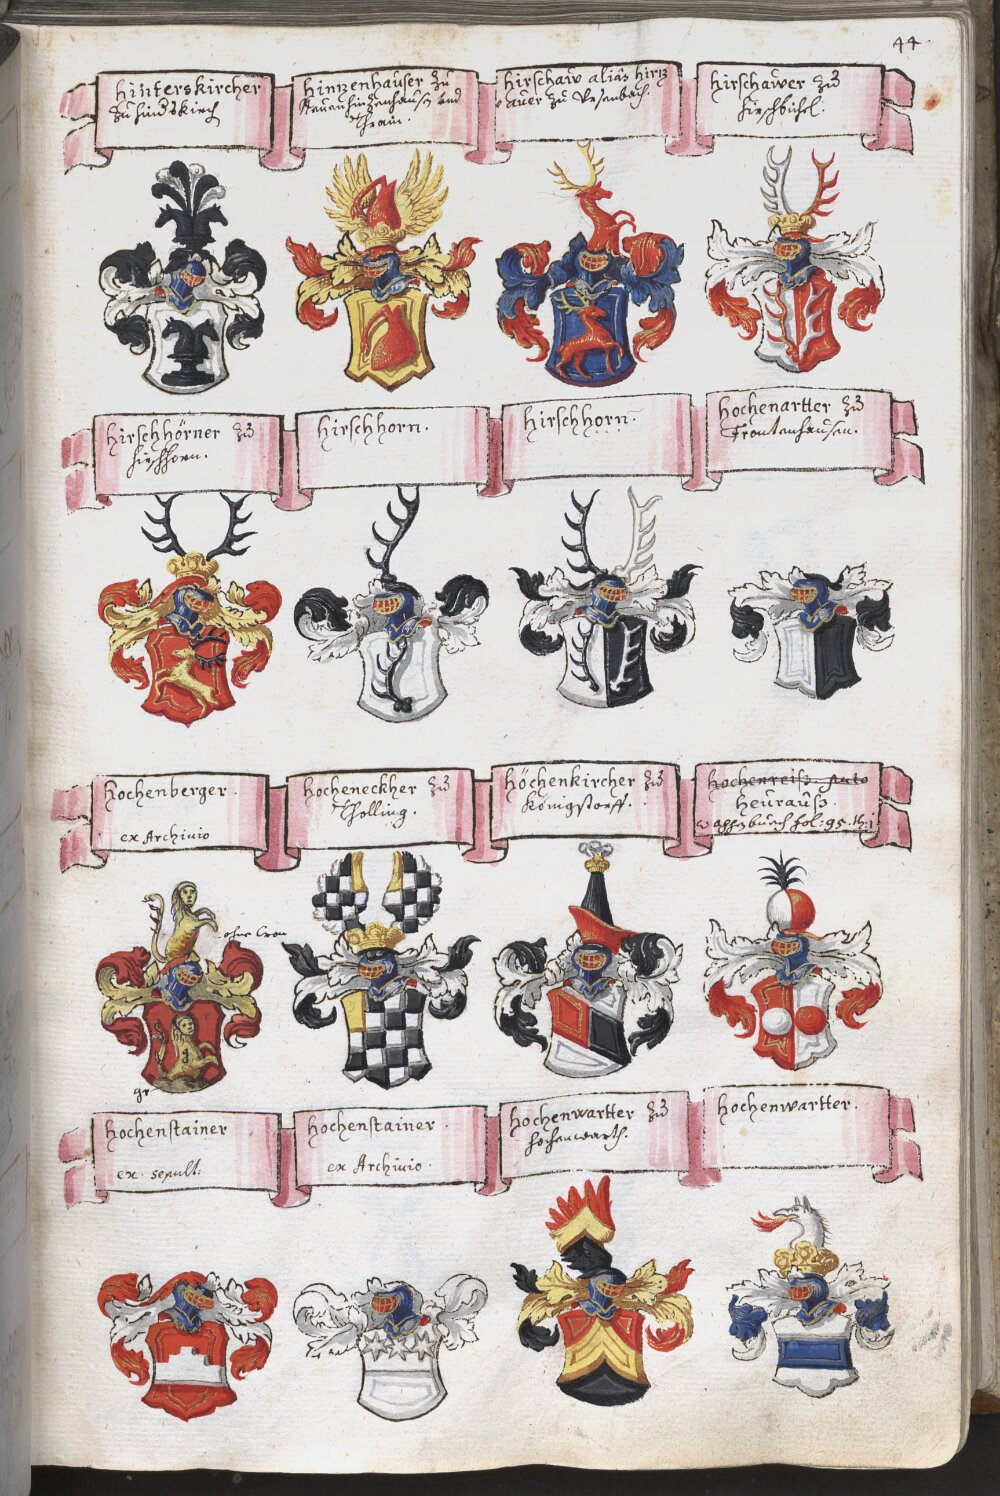 44
Hinterskircher
zu hinderskirch
Hinzenhauser zu
Neuen hinzenhausen und
Thrain.
Hirschaw aliàs Hirtz
auer zu Vesenbach.
Hirschawer zu
hirschbühel.
Hirschhörner zu
hirschhorn.
Hirschhorn.
Hirschhorn.
Hochenartter zu
Frontenhausen.
Hochenberger.
ex Archivio
Hocheneckher zu
Tholling.
Höchenkircher zu
Königstorff.
Hochenreiß. Auto
Heurauß.
wappnbuech fol: 95. th: j
ohne Cron
g
gr
Hochenstainer
ex. sepult:
Hochenstainer.
ex Archivio.
Hochenwartter zu
hochenwarth.
Hochenwartter.